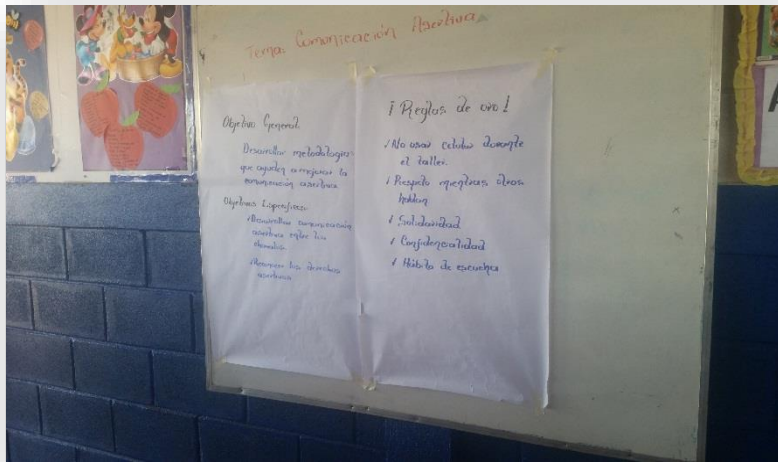 Tema: Comunicación Asertiva
Objetivo General
Desarrollar metodologias
que ayuden a mejorar la
comunicación asertiva
Objetivos Especificos:
Desarrollar comunicación
asertiva entre los
Reconocer los derechos
asertivos
¡Reglas de oro!
✓ No usar celular durante
el taller.
✓ Respeto mientras otros
hablan
✓ Solidaridad
✓ Confidencialidad
✓ Hábito de escucha